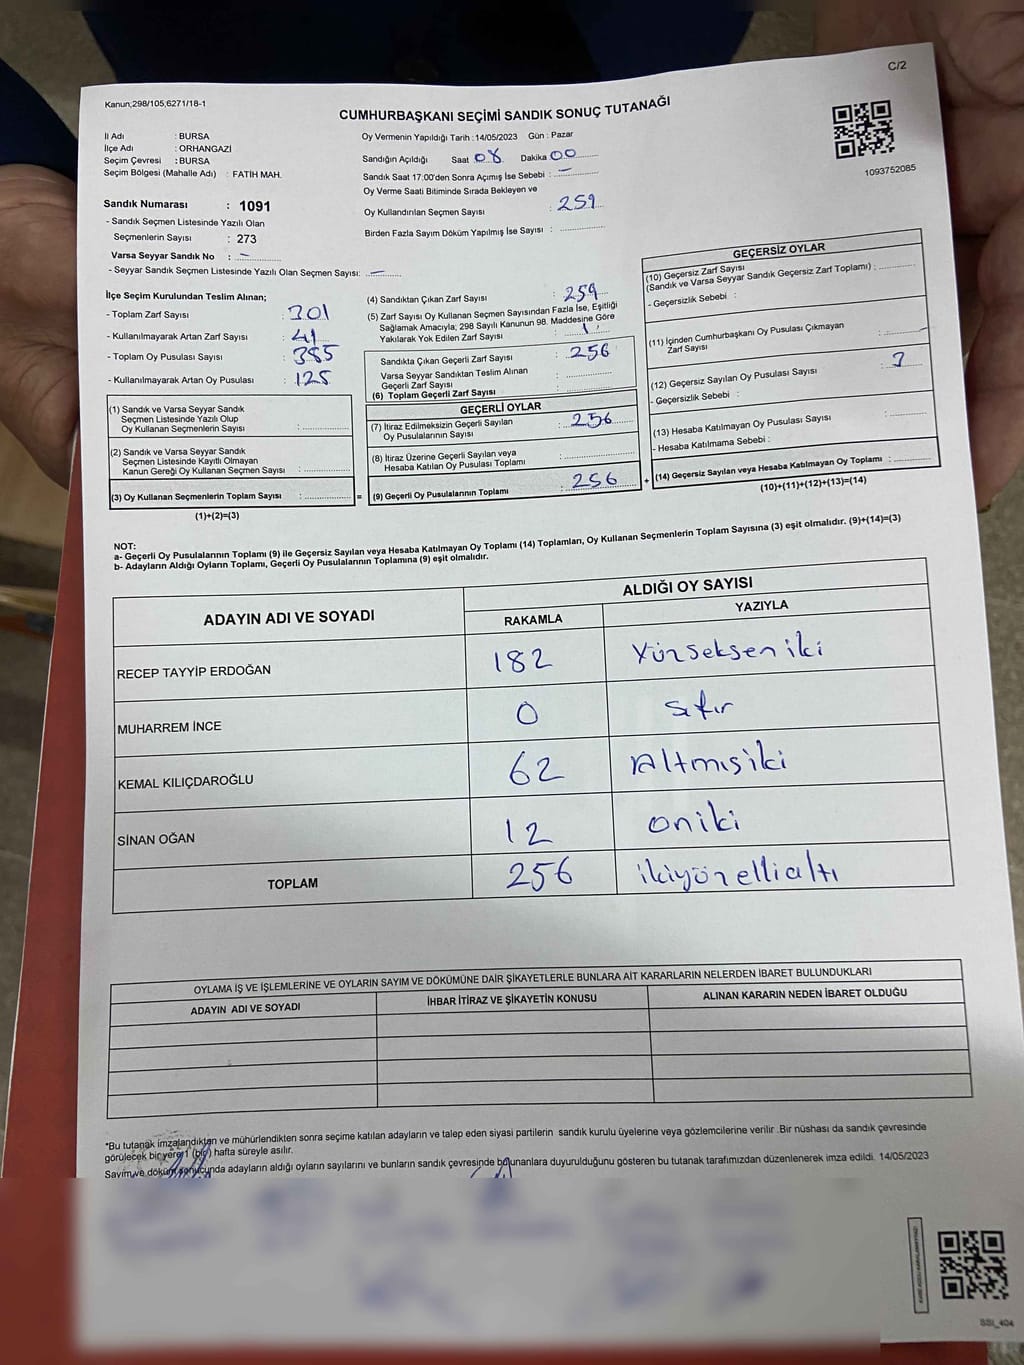 C/2
Kanun;298/105,6271/18-1
CUMHURBAŞKANI SEÇİMİ SANDIK SONUÇ TUTANAĞI
1093752085
İl Adı : BURSA
İlçe Adı : ORHANGAZİ
Seçim Çevresi : BURSA
Seçim Bölgesi (Mahalle Adı) : FATİH MAH.
Oy Vermenin Yapıldığı Tarih : 14/05/2023 Gün : Pazar
Sandığın Açıldığı Saat 08 Dakika 00
Sandık Saat 17:00'den Sonra Açımış İse Sebebi : —
Oy Verme Saati Bitiminde Sırada Bekleyen ve
Oy Kullandırılan Seçmen Sayısı : 259
Birden Fazla Sayım Döküm Yapılmış İse Sayısı :
Sandık Numarası : 1091
- Sandık Seçmen Listesinde Yazılı Olan
Seçmenlerin Sayısı : 273
Varsa Seyyar Sandık No : —
- Seyyar Sandık Seçmen Listesinde Yazılı Olan Seçmen Sayısı: —
İlçe Seçim Kurulundan Teslim Alınan;
- Toplam Zarf Sayısı : 301
- Kullanılmayarak Artan Zarf Sayısı : 41
- Toplam Oy Pusulası Sayısı : 385
- Kullanılmayarak Artan Oy Pusulası : 125
(1) Sandık ve Varsa Seyyar Sandık
Seçmen Listesinde Yazılı Olup
Oy Kullanan Seçmenlerin Sayısı :
(2) Sandık ve Varsa Seyyar Sandık
Seçmen Listesinde Kayıtlı Olmayan
Kanun Gereği Oy Kullanan Seçmen Sayısı :
(3) Oy Kullanan Seçmenlerin Toplam Sayısı :
(1)+(2)=(3)
(4) Sandıktan Çıkan Zarf Sayısı : 259
(5) Zarf Sayısı Oy Kullanan Seçmen Sayısından Fazla İse, Eşitliği
Sağlamak Amacıyla; 298 Sayılı Kanunun 98. Maddesine Göre
Yakılarak Yok Edilen Zarf Sayısı :
Sandıkta Çıkan Geçerli Zarf Sayısı : 256
Varsa Seyyar Sandıktan Teslim Alınan
Geçerli Zarf Sayısı :
(6) Toplam Geçerli Zarf Sayısı :
GEÇERLİ OYLAR
(7) İtiraz Edilmeksizin Geçerli Sayılan
Oy Pusulalarının Sayısı : 256
(8) İtiraz Üzerine Geçerli Sayılan veya
Hesaba Katılan Oy Pusulası Toplamı :
= (9) Geçerli Oy Pusulalarının Toplamı : 256
GEÇERSİZ OYLAR
(10) Geçersiz Zarf Sayısı
(Sandık ve Varsa Seyyar Sandık Geçersiz Zarf Toplamı) :
- Geçersizlik Sebebi :
(11) İçinden Cumhurbaşkanı Oy Pusulası Çıkmayan
Zarf Sayısı :
(12) Geçersiz Sayılan Oy Pusulası Sayısı : 3
- Geçersizlik Sebebi :
(13) Hesaba Katılmayan Oy Pusulası Sayısı :
- Hesaba Katılmama Sebebi :
+ (14) Geçersiz Sayılan veya Hesaba Katılmayan Oy Toplamı :
(10)+(11)+(12)+(13)=(14)
NOT:
a- Geçerli Oy Pusulalarının Toplamı (9) ile Geçersiz Sayılan veya Hesaba Katılmayan Oy Toplamı (14) Toplamları, Oy Kullanan Seçmenlerin Toplam Sayısına (3) eşit olmalıdır. (9)+(14)=(3)
b- Adayların Aldığı Oyların Toplamı, Geçerli Oy Pusulalarının Toplamına (9) eşit olmalıdır.
ADAYIN ADI VE SOYADI ALDIĞI OY SAYISI
RAKAMLA YAZIYLA
RECEP TAYYİP ERDOĞAN 182 Yüzseksen iki
MUHARREM İNCE 0 sıfır
KEMAL KILIÇDAROĞLU 62 Altmış iki
SİNAN OĞAN 12 oniki
TOPLAM 256 ikiyüz ellialtı
OYLAMA İŞ VE İŞLEMLERİNE VE OYLARIN SAYIM VE DÖKÜMÜNE DAİR ŞİKAYETLERLE BUNLARA AİT KARARLARIN NELERDEN İBARET BULUNDUKLARI
ADAYIN ADI VE SOYADI İHBAR İTİRAZ VE ŞİKAYETİN KONUSU ALINAN KARARIN NEDEN İBARET OLDUĞU
*Bu tutanak imzalandıktan ve mühürlendikten sonra seçime katılan adayların ve talep eden siyasi partilerin sandık kurulu üyelerine veya gözlemcilerine verilir .Bir nüshası da sandık çevresinde
görülecek bir yere 1 (bir) hafta süreyle asılır.
Sayım ve döküm sonucunda adayların aldığı oyların sayılarını ve bunların sandık çevresinde bulunanlara duyurulduğunu gösteren bu tutanak tarafımızdan düzenlenerek imza edildi. 14/05/2023
SSI_404